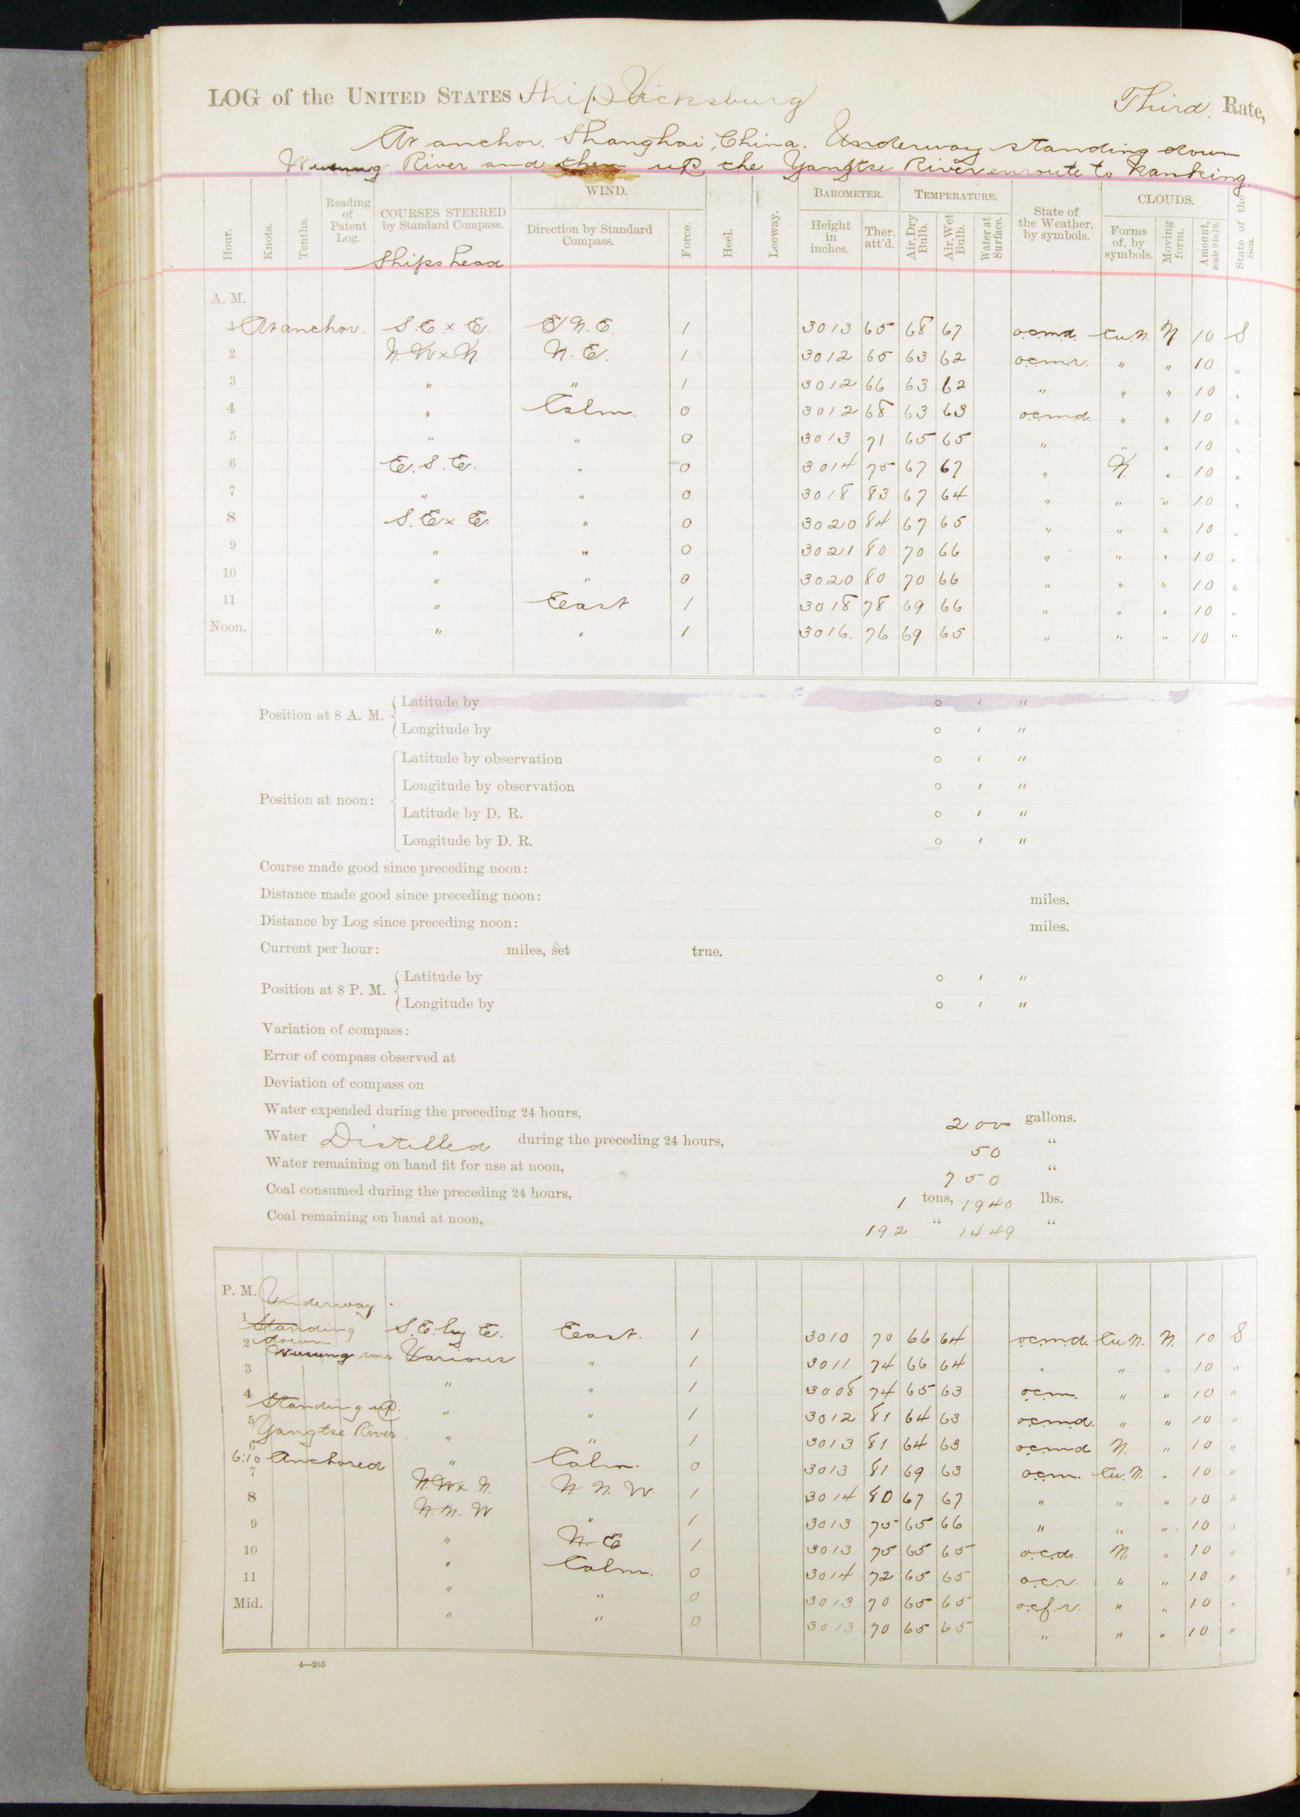 LOG of the UNITED STATES Ship Vicksburg Third Rate,
At anchor, Shanghai, China. Underway standing down
Wusung River and then up the Yangtse River enroute to Nanking.
Hour. Knots. Tenths. Reading of Patent Log. COURSES STEERED by Standard Compass. Ships head WIND. Direction by Standard Compass. Force. Heel. Leeway. BAROMETER. Height in inches. Ther. att'd. TEMPERATURE. Air, Dry Bulb. Air, Wet Bulb. Water at Surface. State of the Weather, by symbols. CLOUDS. Forms of, by symbols. Moving form. Amount, scale 0 to 10. State of the Sea.
A. M.
1 At anchor. S.E x E. E N.E. 1 3013 65 68 67 ocmd. Cu.N. N 10 S
2 N.W x N N.E. 1 3012 65 63 62 ocmr. " " 10 "
3 " " 1 3012 66 63 62 " " " 10 "
4 " Calm. 0 3012 68 63 63 ocmd. " " 10 "
5 " " 0 3013 71 65 65 " " " 10 "
6 E.S.E. " 0 3014 75 67 67 " N. " 10 "
7 " " 0 3018 83 67 64 " " " 10 "
8 S.E x E. " 0 3020 84 67 65 " " " 10 "
9 " " 0 3021 80 70 66 " " " 10 "
10 " " 0 3020 80 70 66 " " " 10 "
11 " East 1 3018 78 69 66 " " " 10 "
Noon. " " 1 3016. 76 69 65 " " " 10 "
Position at 8 A. M. Latitude by ° ' "
Longitude by ° ' "
Position at noon: Latitude by observation ° ' "
Longitude by observation ° ' "
Latitude by D. R. ° ' "
Longitude by D. R. ° ' "
Course made good since preceding noon:
Distance made good since preceding noon: miles.
Distance by Log since preceding noon: miles.
Current per hour: miles, set true.
Position at 8 P. M. Latitude by ° ' "
Longitude by ° ' "
Variation of compass:
Error of compass observed at
Deviation of compass on
Water expended during the preceding 24 hours, 200 gallons.
Water Distilled during the preceding 24 hours, 50 "
Water remaining on hand fit for use at noon, 750 "
Coal consumed during the preceding 24 hours, 1 tons, 1940 lbs.
Coal remaining on hand at noon, 192 " 1449 "
P. M. Underway.
1 Standing S.E. by E. East. 1 3010 70 66 64 ocmd. Cu.N. N. 10 S
2 down Wusung Various " 1 3011 74 66 64 " " " 10 "
3 " " 1 3008 74 65 63 ocm. " " 10 "
4 Standing up " " 1 3012 81 64 63 ocmd. " " 10 "
5 Yangtse River. " " 1 3013 81 64 63 ocmd N. " 10 "
6 6:10 Anchored " Calm. 0 3013 81 69 63 ocm. Cu.N. " 10 "
7 N.W x N. N N.W 1 3014 80 67 67 " " " 10 "
8 N.N.W " 1 3013 75 65 66 " " " 10 "
9 " N.E 1 3013 75 65 65 ocd. N. " 10 "
10 " Calm. 0 3014 72 65 65 ocr. " " 10 "
11 " " 0 3013 70 65 65 ocfr. " " 10 "
Mid. " " 0 3013 70 65 65 " " " 10 "
4—265